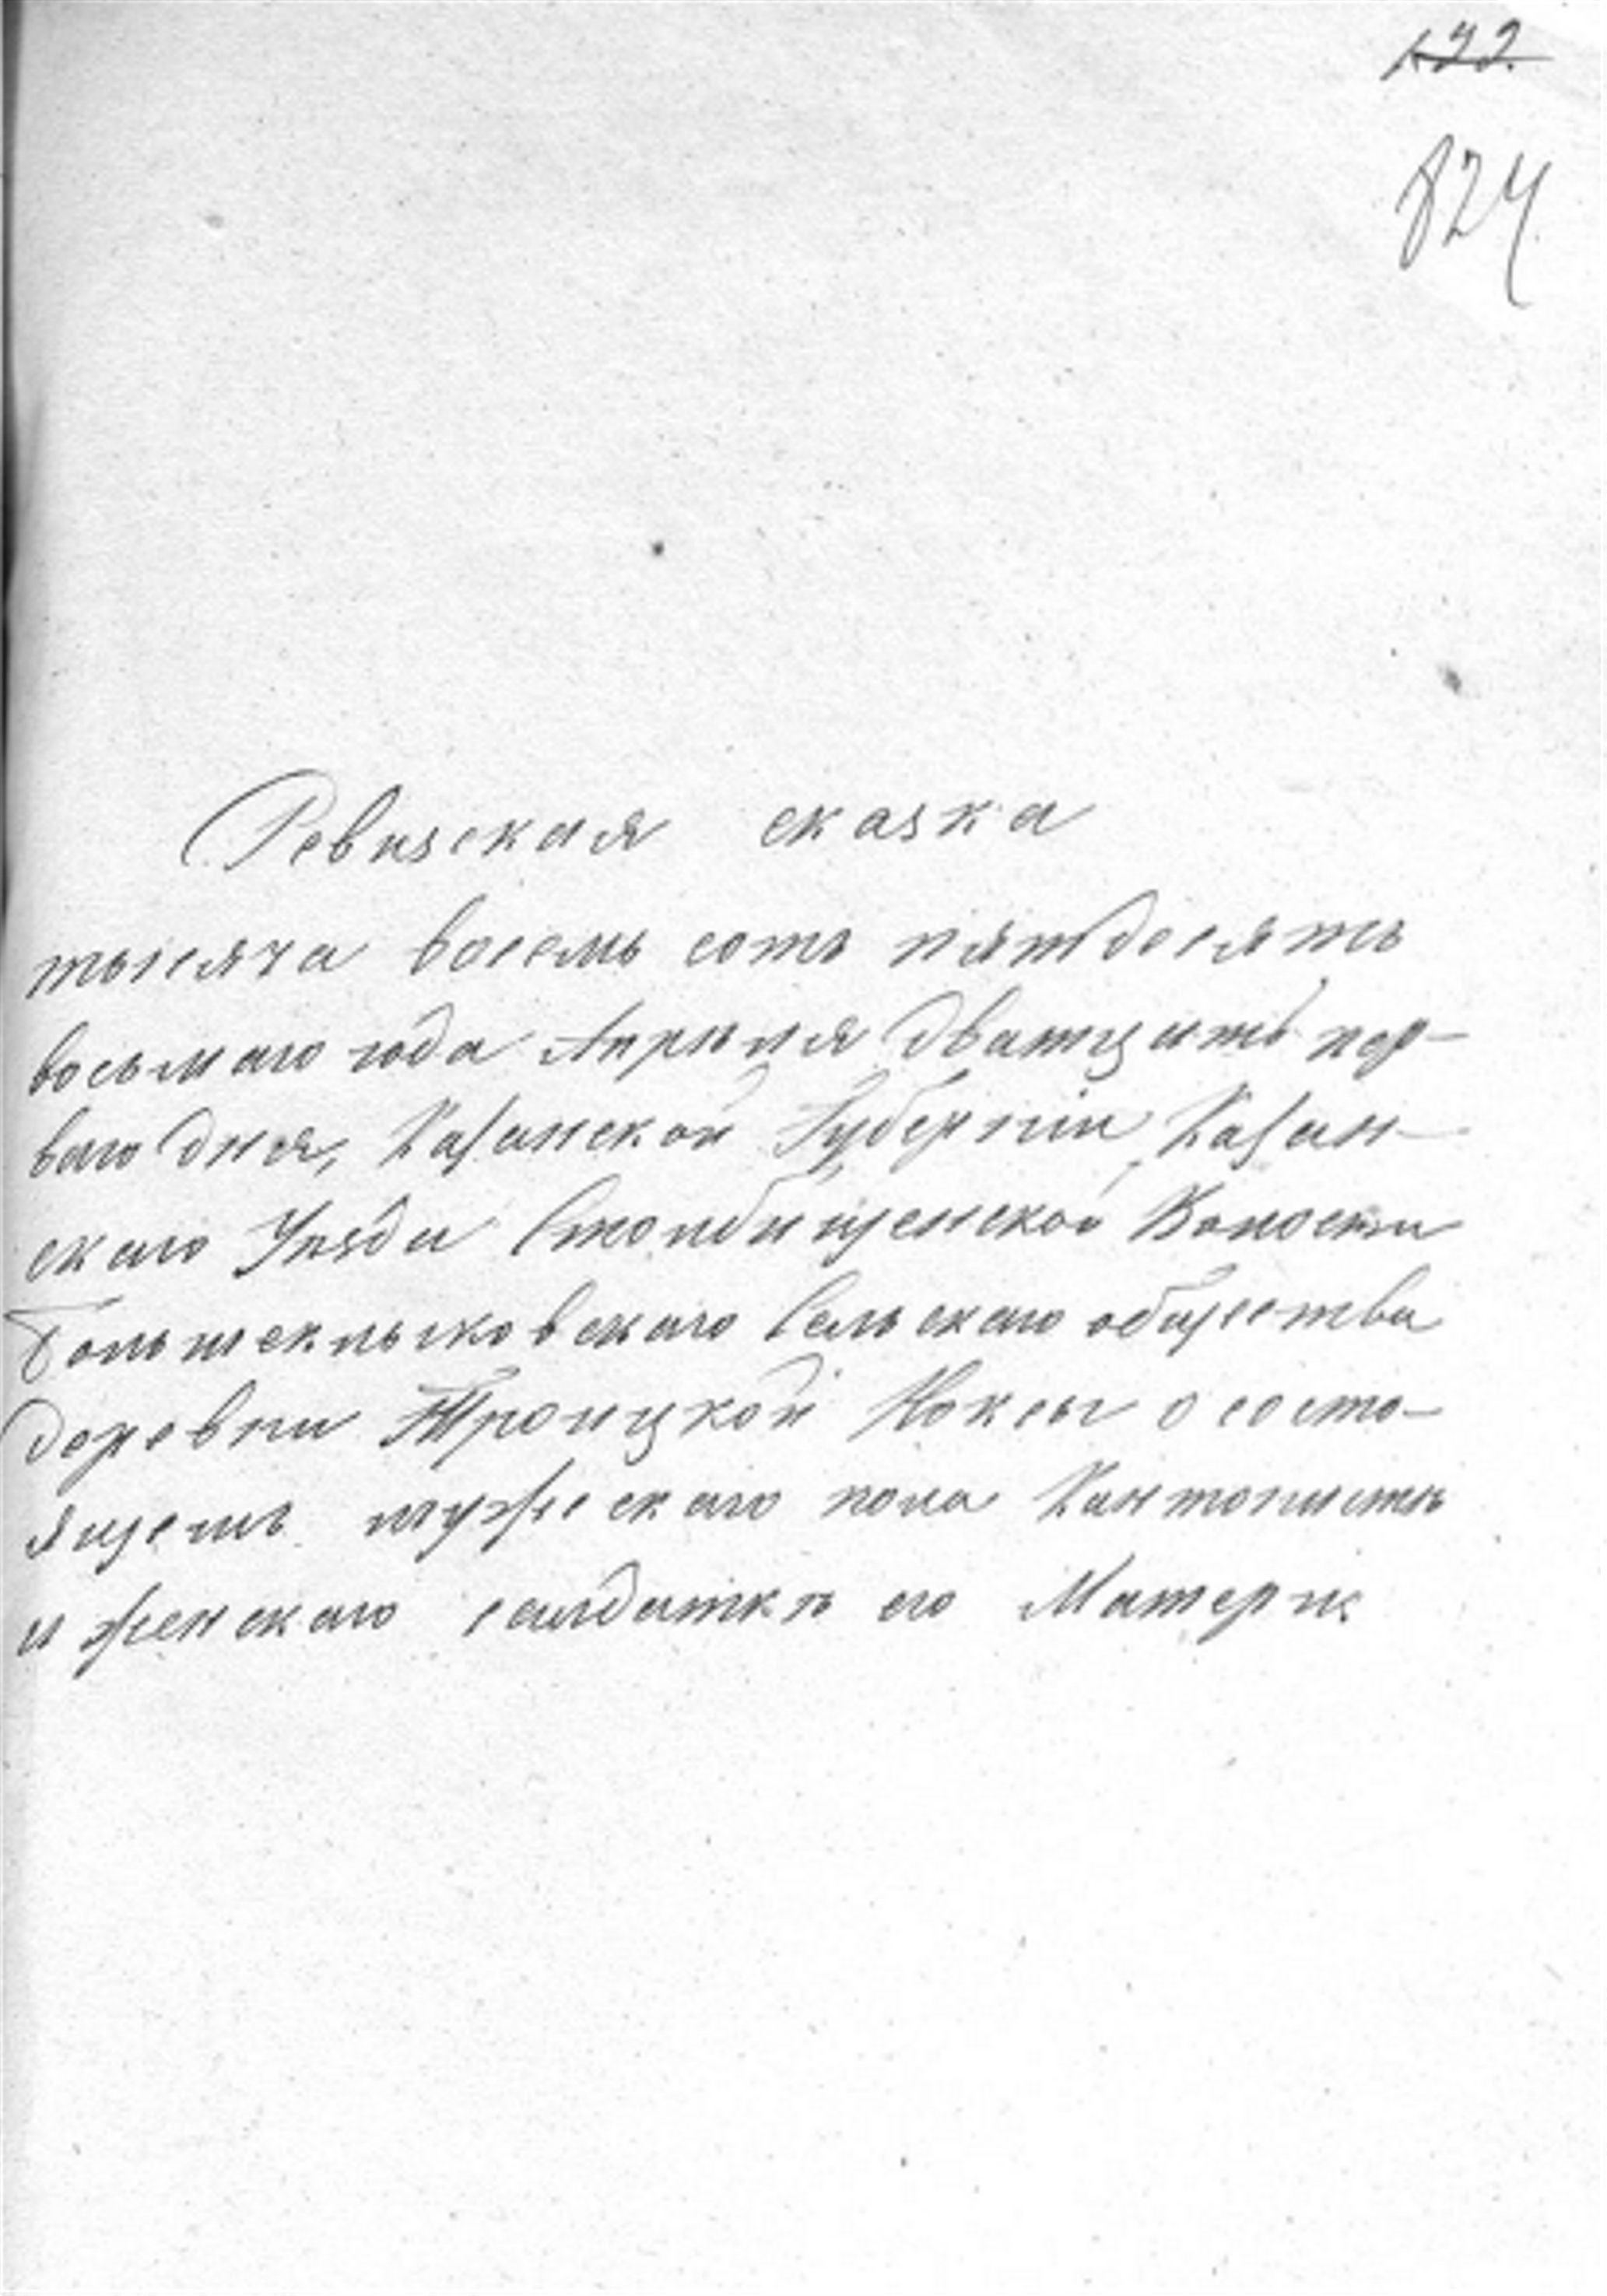 122.
824
Ревизская сказка
тысяча восемь сотъ пятьдесятъ
восьмаго года Апрѣля дватцать пер-
ваго дня, Казанской Губерніи Казан-
скаго Уѣзда Столбищенской Волости
Сельскаго общества
деревни Троицкой Ноксы о состо-
ящемъ мужескаго пола Кантонистѣ
и женскаго салдаткѣ его Матери